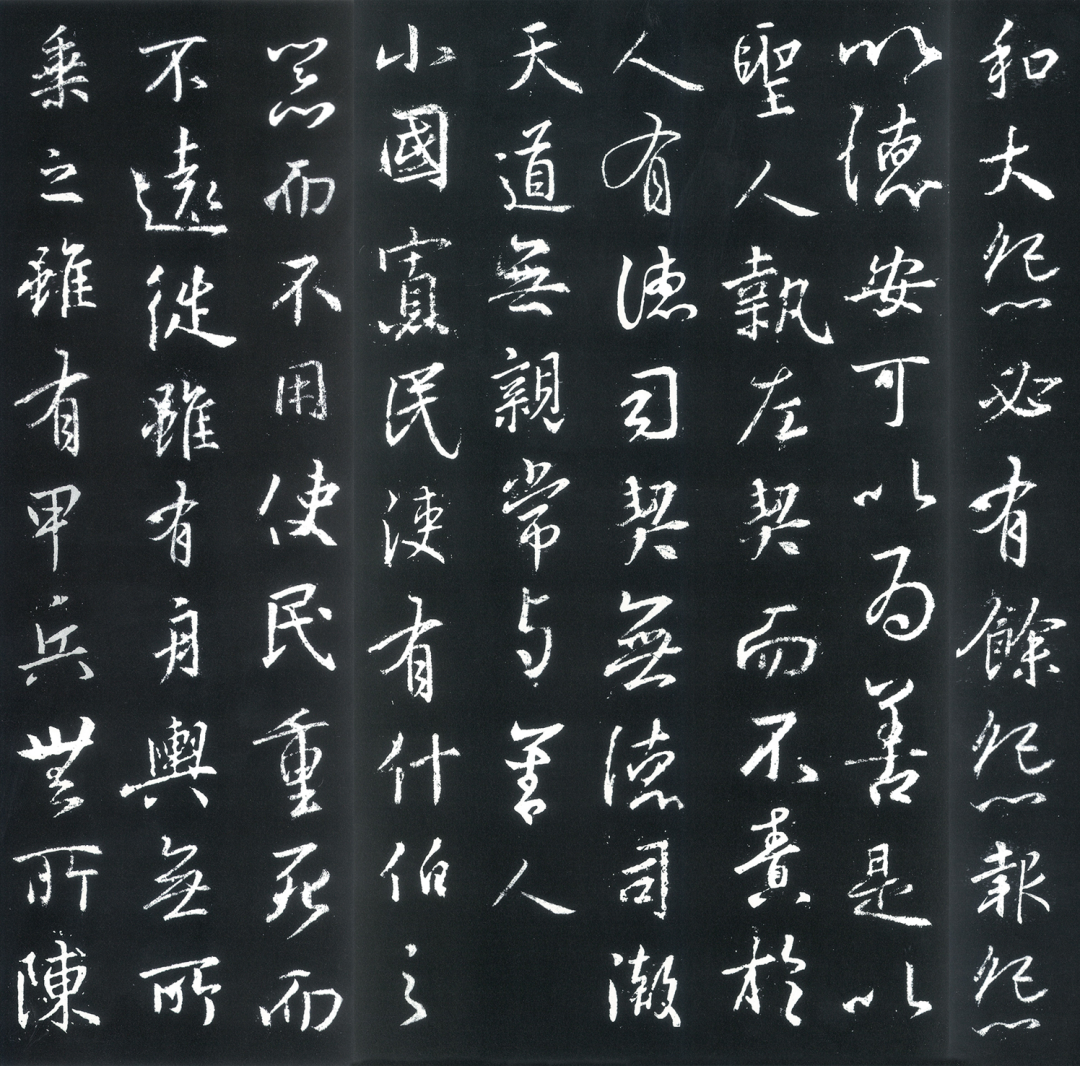 和大怨必有餘怨報怨
以德安可以為善是以
聖人執左契而不責於
人有德司契無德司徹
天道無親常与善人
小國寡民使有什伯之
器而不用使民重死而
不遠徙雖有舟輿無所
乗之雖有甲兵無所陳